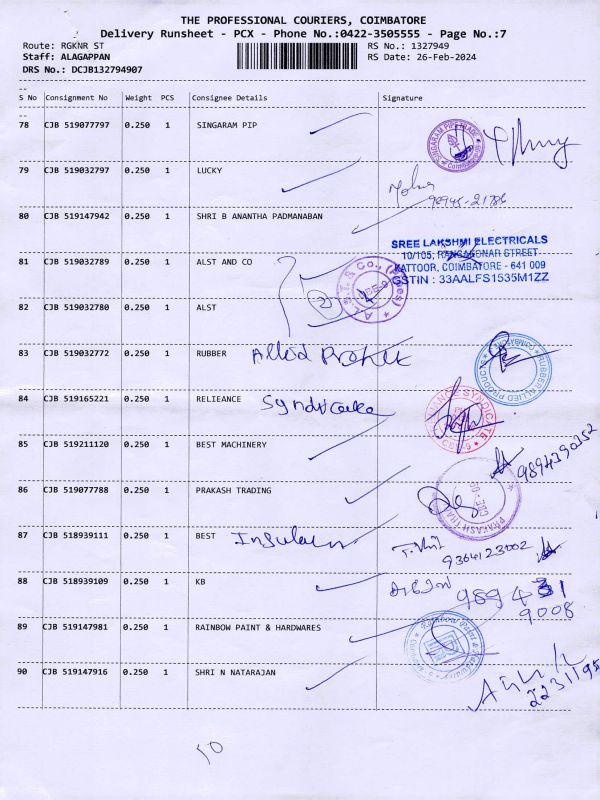 THE PROFESSIONAL COURIERS, COIMBATORE
Delivery Runsheet - PCX - Phone No.:0422-3505555 - Page No.:7
Route: RGKNR ST
RS No.: 1327949
Staff: ALAGAPPAN
RS Date: 26-Feb-2024
DRS No.: DCJB132794907
S No Consignment No Weight PCS Consignee Details Signature
78 CJB 519077797 0.250 1 SINGARAM PIP
79 CJB 519032797 0.250 1 LUCKY
80 CJB 519147942 0.250 1 SHRI B ANANTHA PADMANABAN
SREE LAKSHMI ELECTRICALS
10/105, RANGAGONAR STREET
KATTOOR, COIMBATORE - 641 009
GSTIN : 33AALFS1535M1ZZ
81 CJB 519032789 0.250 1 ALST AND CO
82 CJB 519032780 0.250 1 ALST
83 CJB 519032772 0.250 1 RUBBER Allied
RUBBER ALLIED PRODUCTS
84 CJB 519165221 0.250 1 RELIEANCE Syndicate
85 CJB 519211120 0.250 1 BEST MACHINERY
9894390252
86 CJB 519077788 0.250 1 PRAKASH TRADING
87 CJB 518939111 0.250 1 BEST
9364123002
88 CJB 518939109 0.250 1 KB
9008
89 CJB 519147981 0.250 1 RAINBOW PAINT & HARDWARES
90 CJB 519147916 0.250 1 SHRI N NATARAJAN